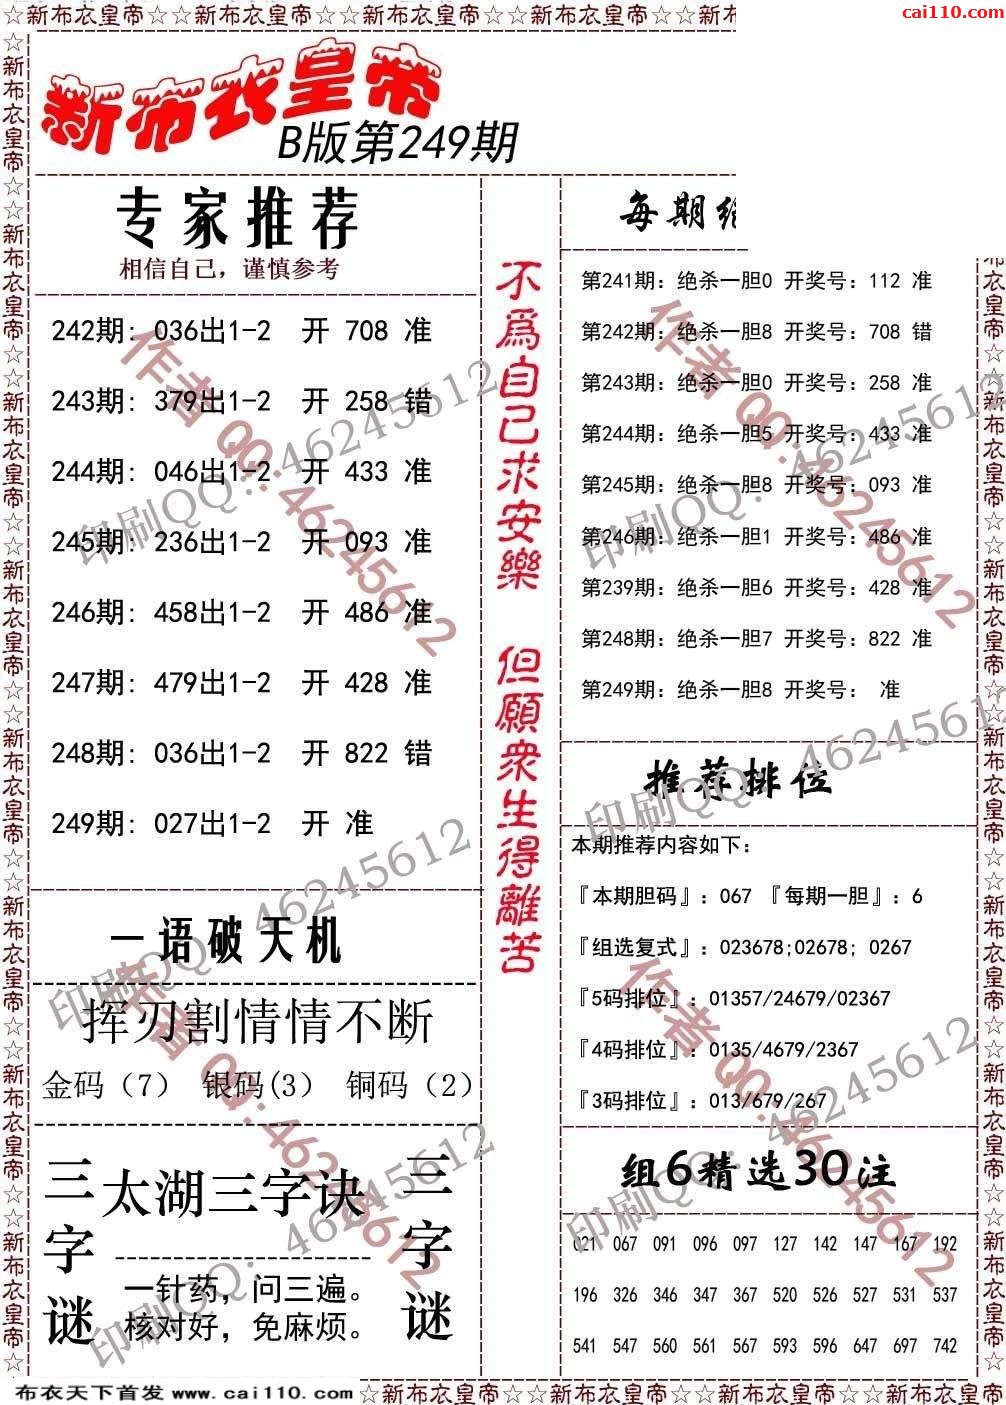 ☆新布衣皇帝☆☆新布衣皇帝☆☆新布衣皇帝☆☆新布衣皇帝☆☆新布
cai110.com
新布衣皇帝
B版第249期
专家推荐
相信自己，谨慎参考
242期: 036出1-2 开 708 准
243期: 379出1-2 开 258 错
244期: 046出1-2 开 433 准
245期: 236出1-2 开 093 准
246期: 458出1-2 开 486 准
247期: 479出1-2 开 428 准
248期: 036出1-2 开 822 错
249期: 027出1-2 开 准
一语破天机
挥刃割情情不断
金码（7） 银码(3） 铜码（2）
三字谜
太湖三字诀
一针药，问三遍。
核对好，免麻烦。
三字谜
不為自己求安樂
但願衆生得離苦
每期
第241期：绝杀一胆0 开奖号：112 准
第242期：绝杀一胆8 开奖号：708 错
第243期：绝杀一胆0 开奖号：258 准
第244期：绝杀一胆5 开奖号：433 准
第245期：绝杀一胆8 开奖号：093 准
第246期：绝杀一胆1 开奖号：486 准
第239期：绝杀一胆6 开奖号：428 准
第248期：绝杀一胆7 开奖号：822 准
第249期：绝杀一胆8 开奖号： 准
推荐排位
本期推荐内容如下：
『本期胆码』：067 『每期一胆』：6
『组选复式』：023678;02678; 0267
『5码排位』：01357/24679/02367
『4码排位』：0135/4679/2367
『3码排位』：013/679/267
组6精选30注
021 067 091 096 097 127 142 147 167 192
196 326 346 347 367 520 526 527 531 537
541 547 560 561 567 593 596 647 697 742
作者QQ:46245612
印刷QQ：46245612
作者QQ:46245612
印刷QQ：46245612
印刷QQ：46245612
印刷QQ：46245612
作者QQ:46245612
作者QQ:46245612
印刷QQ：46245612
印刷QQ：46245612
☆新布衣皇帝☆☆新布衣皇帝☆☆新布衣皇帝☆☆新布衣皇帝☆☆新布衣皇帝☆☆新布衣皇帝☆☆新布衣皇帝☆☆新布衣皇帝☆
衣皇帝☆☆新布衣皇帝☆☆新布衣皇帝☆☆新布衣皇帝☆☆新布衣皇帝☆☆新布衣皇帝☆☆新布衣皇帝☆
布衣天下首发 www.cai110.com
☆新布衣皇帝☆☆新布衣皇帝☆☆新布衣皇帝☆☆新布衣皇帝☆